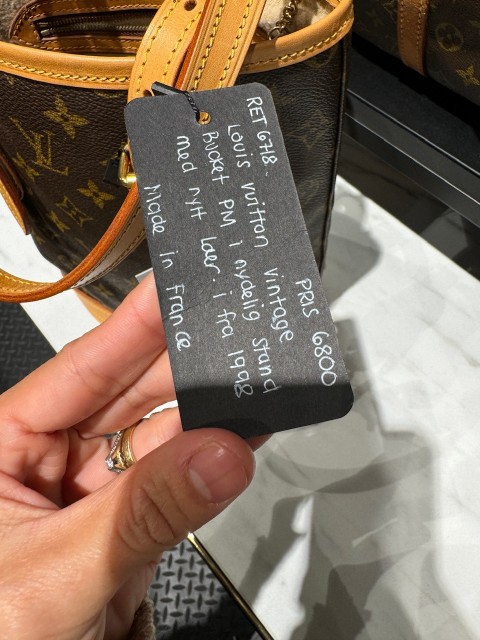 RET 6718- PRIS 6800
Louis Vuitton Vintage
Bucket PM i nydelig stand
med nytt lær. i fra 1998
Made in France